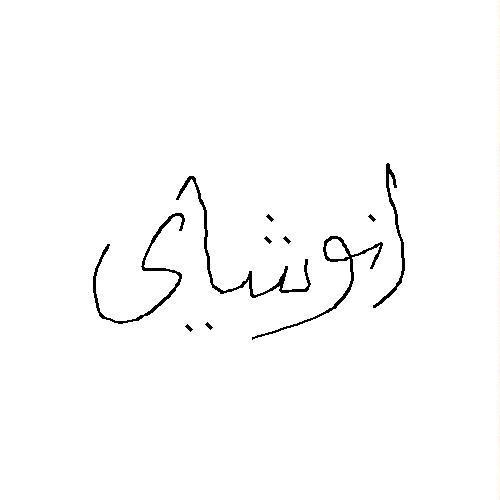 انوشاي